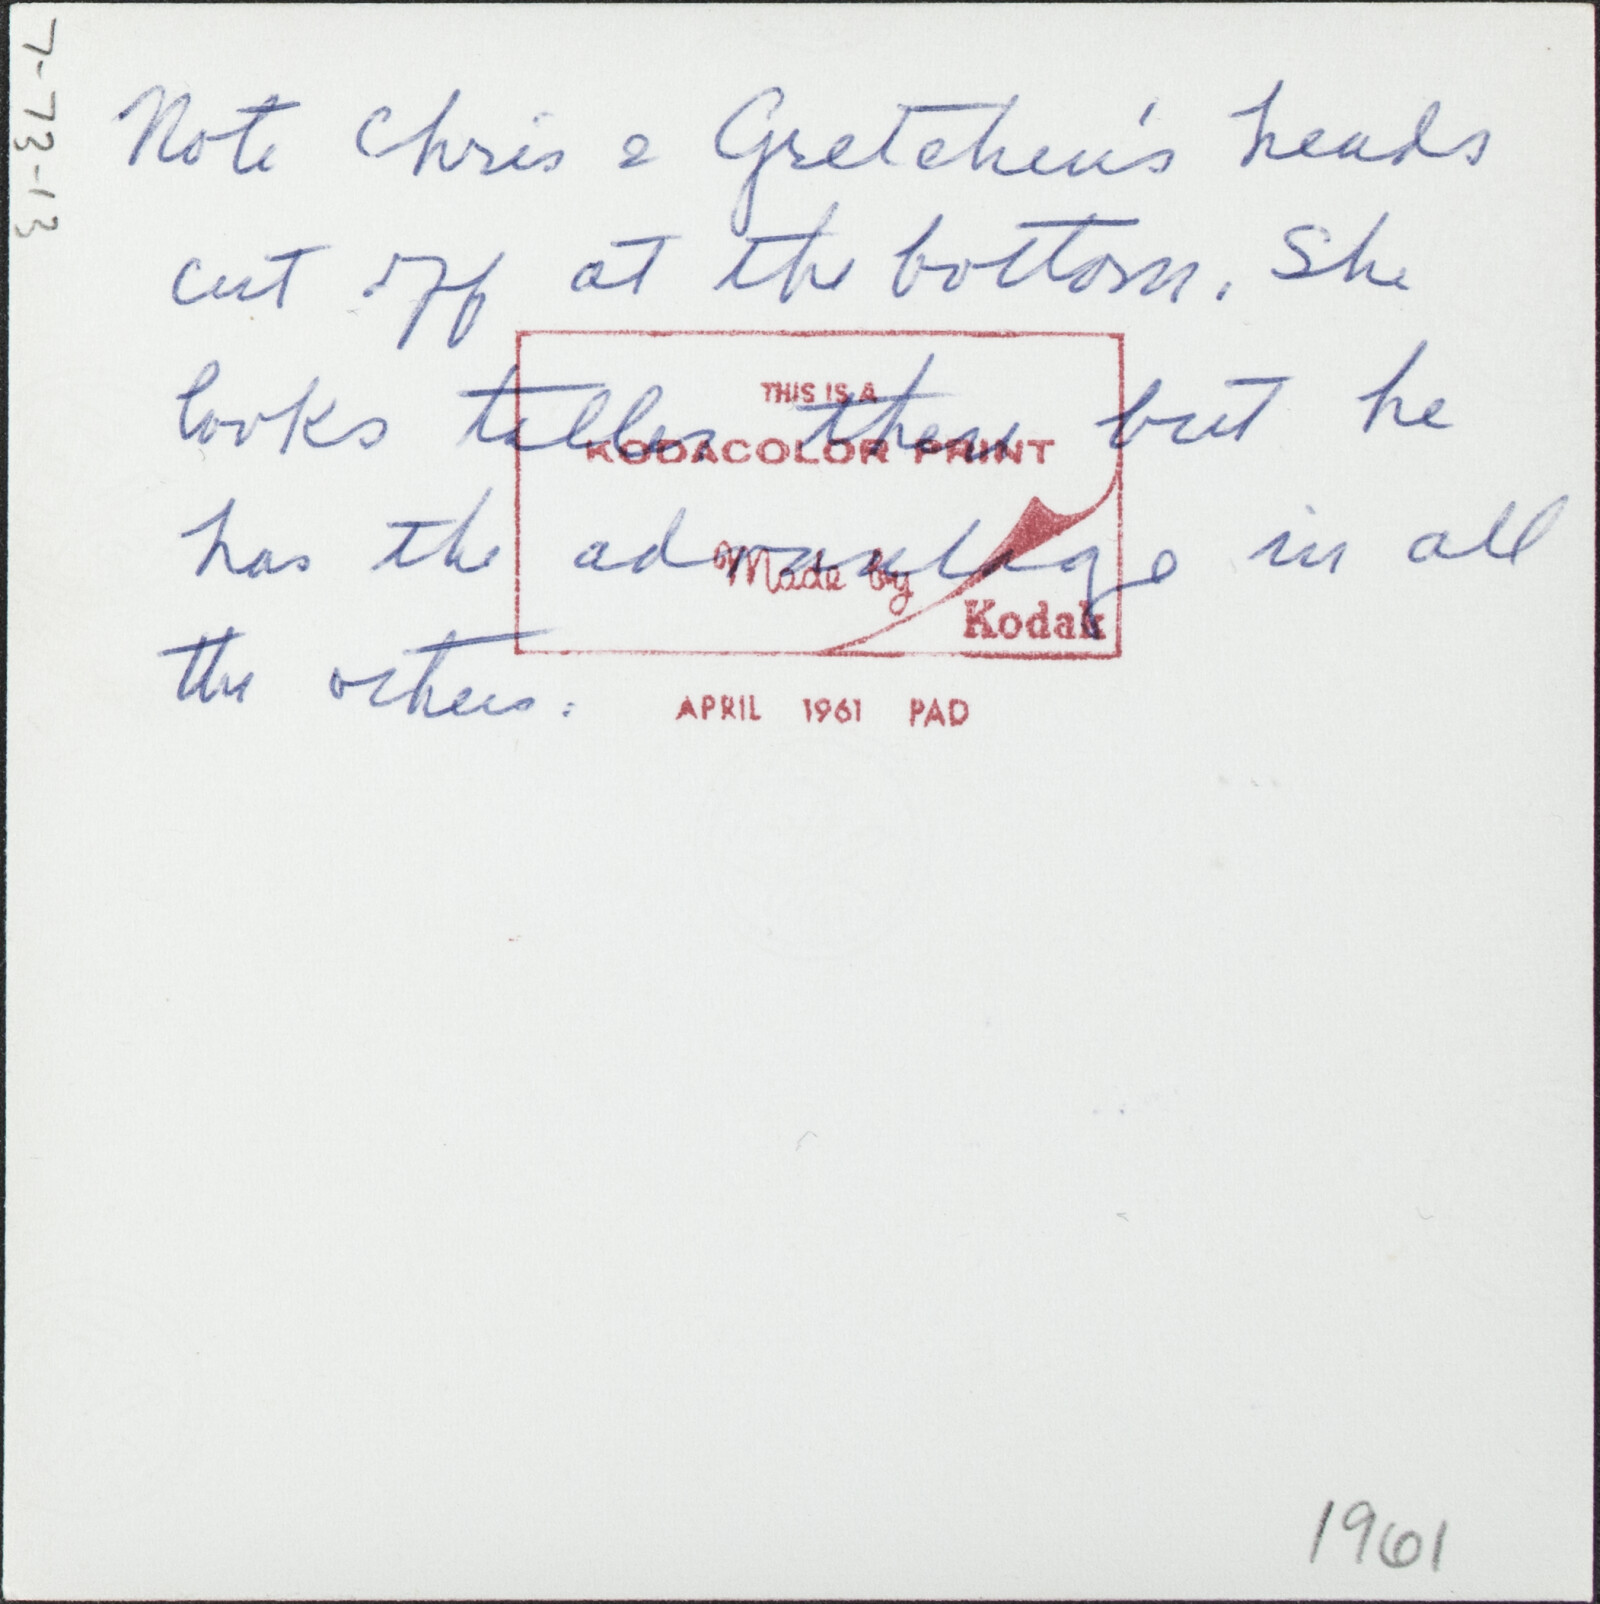 7-73-13
Note Chris & Gretchen's heads
cut off at the bottom. She
looks taller there but he
has the advantage in all
the others.
THIS IS A
KODACOLOR PRINT
Made by
Kodak
APRIL 1961 PAD
1961